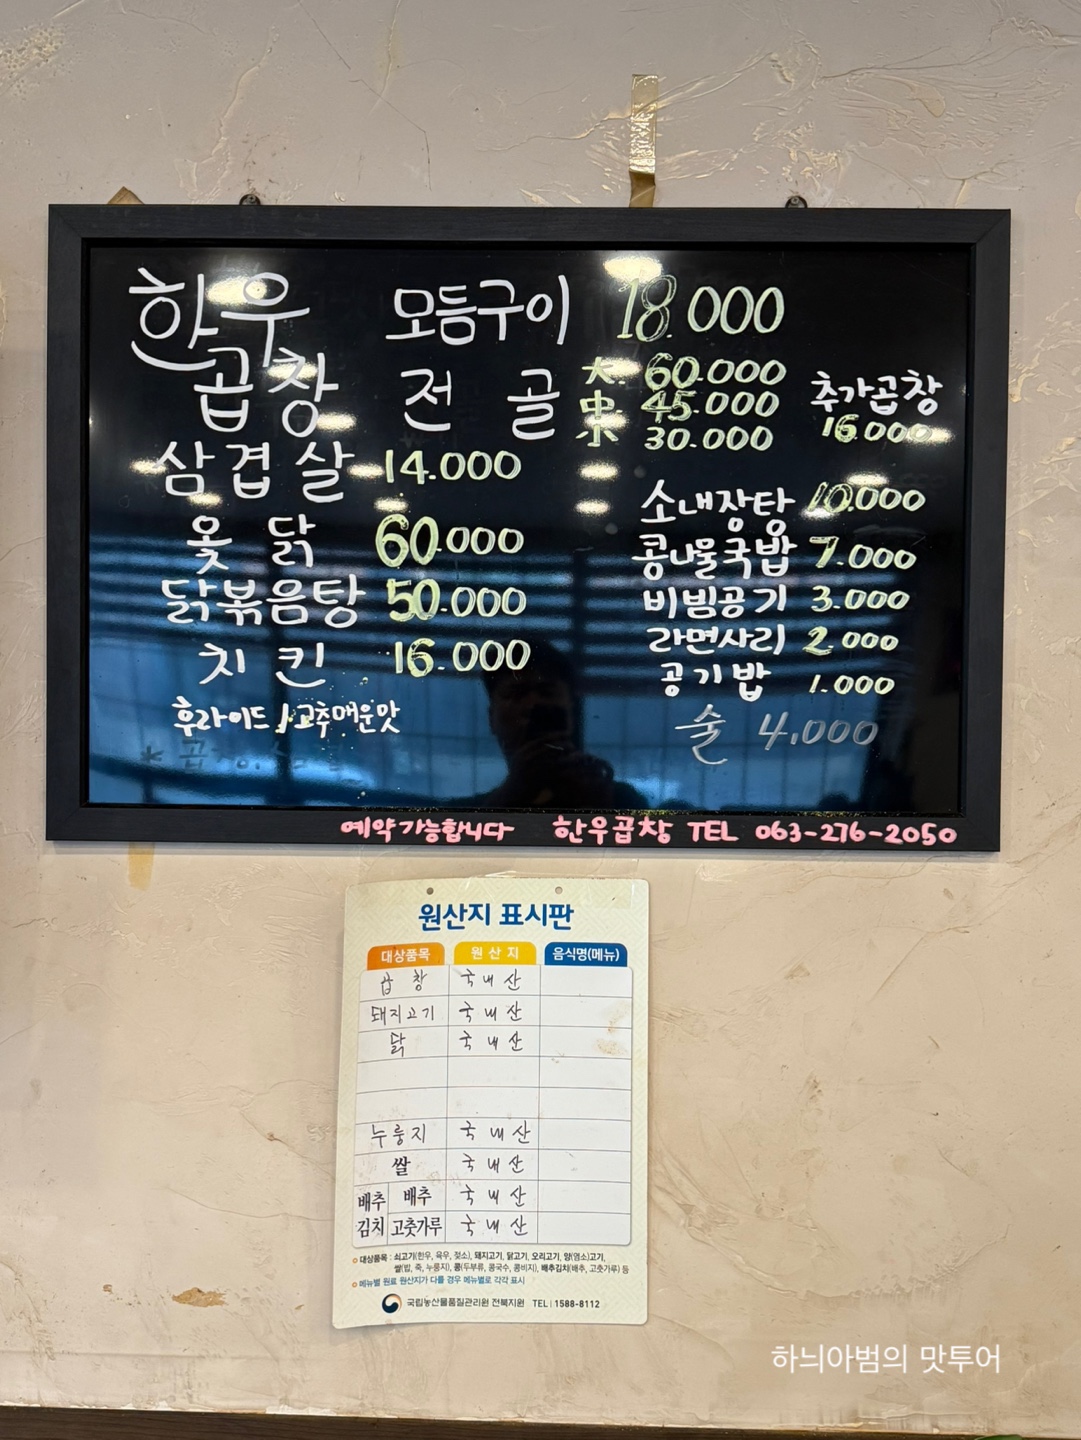 한우
곱창
모듬구이 18.000
전 골
大. 60.000
中. 45.000
小. 30.000
추가곱창
16.000
삼겹살 14.000
옻 닭 60.000
닭볶음탕 50.000
치킨 16.000
후라이드 / 고추매운맛
소내장탕 10.000
콩나물국밥 7.000
비빔공기 3.000
라면사리 2.000
공기밥 1.000
술 4.000
예약가능합니다 한우곱창 TEL 063-276-2050
원산지 표시판
대상품목 원산지 음식명(메뉴)
곱창 국내산
돼지고기 국내산
닭 국내산
누룽지 국내산
쌀 국내산
배추김치 배추 국내산
고춧가루 국내산
대상품목 : 쇠고기(한우, 육우, 젖소), 돼지고기, 닭고기, 오리고기, 양(염소)고기,
쌀(밥, 죽, 누룽지), 콩(두부류, 콩국수, 콩비지), 배추김치(배추, 고춧가루) 등
메뉴별 원료 원산지가 다를 경우 메뉴별로 각각 표시
국립농산물품질관리원 전북지원 TEL | 1588-8112
하늬아범의 맛투어